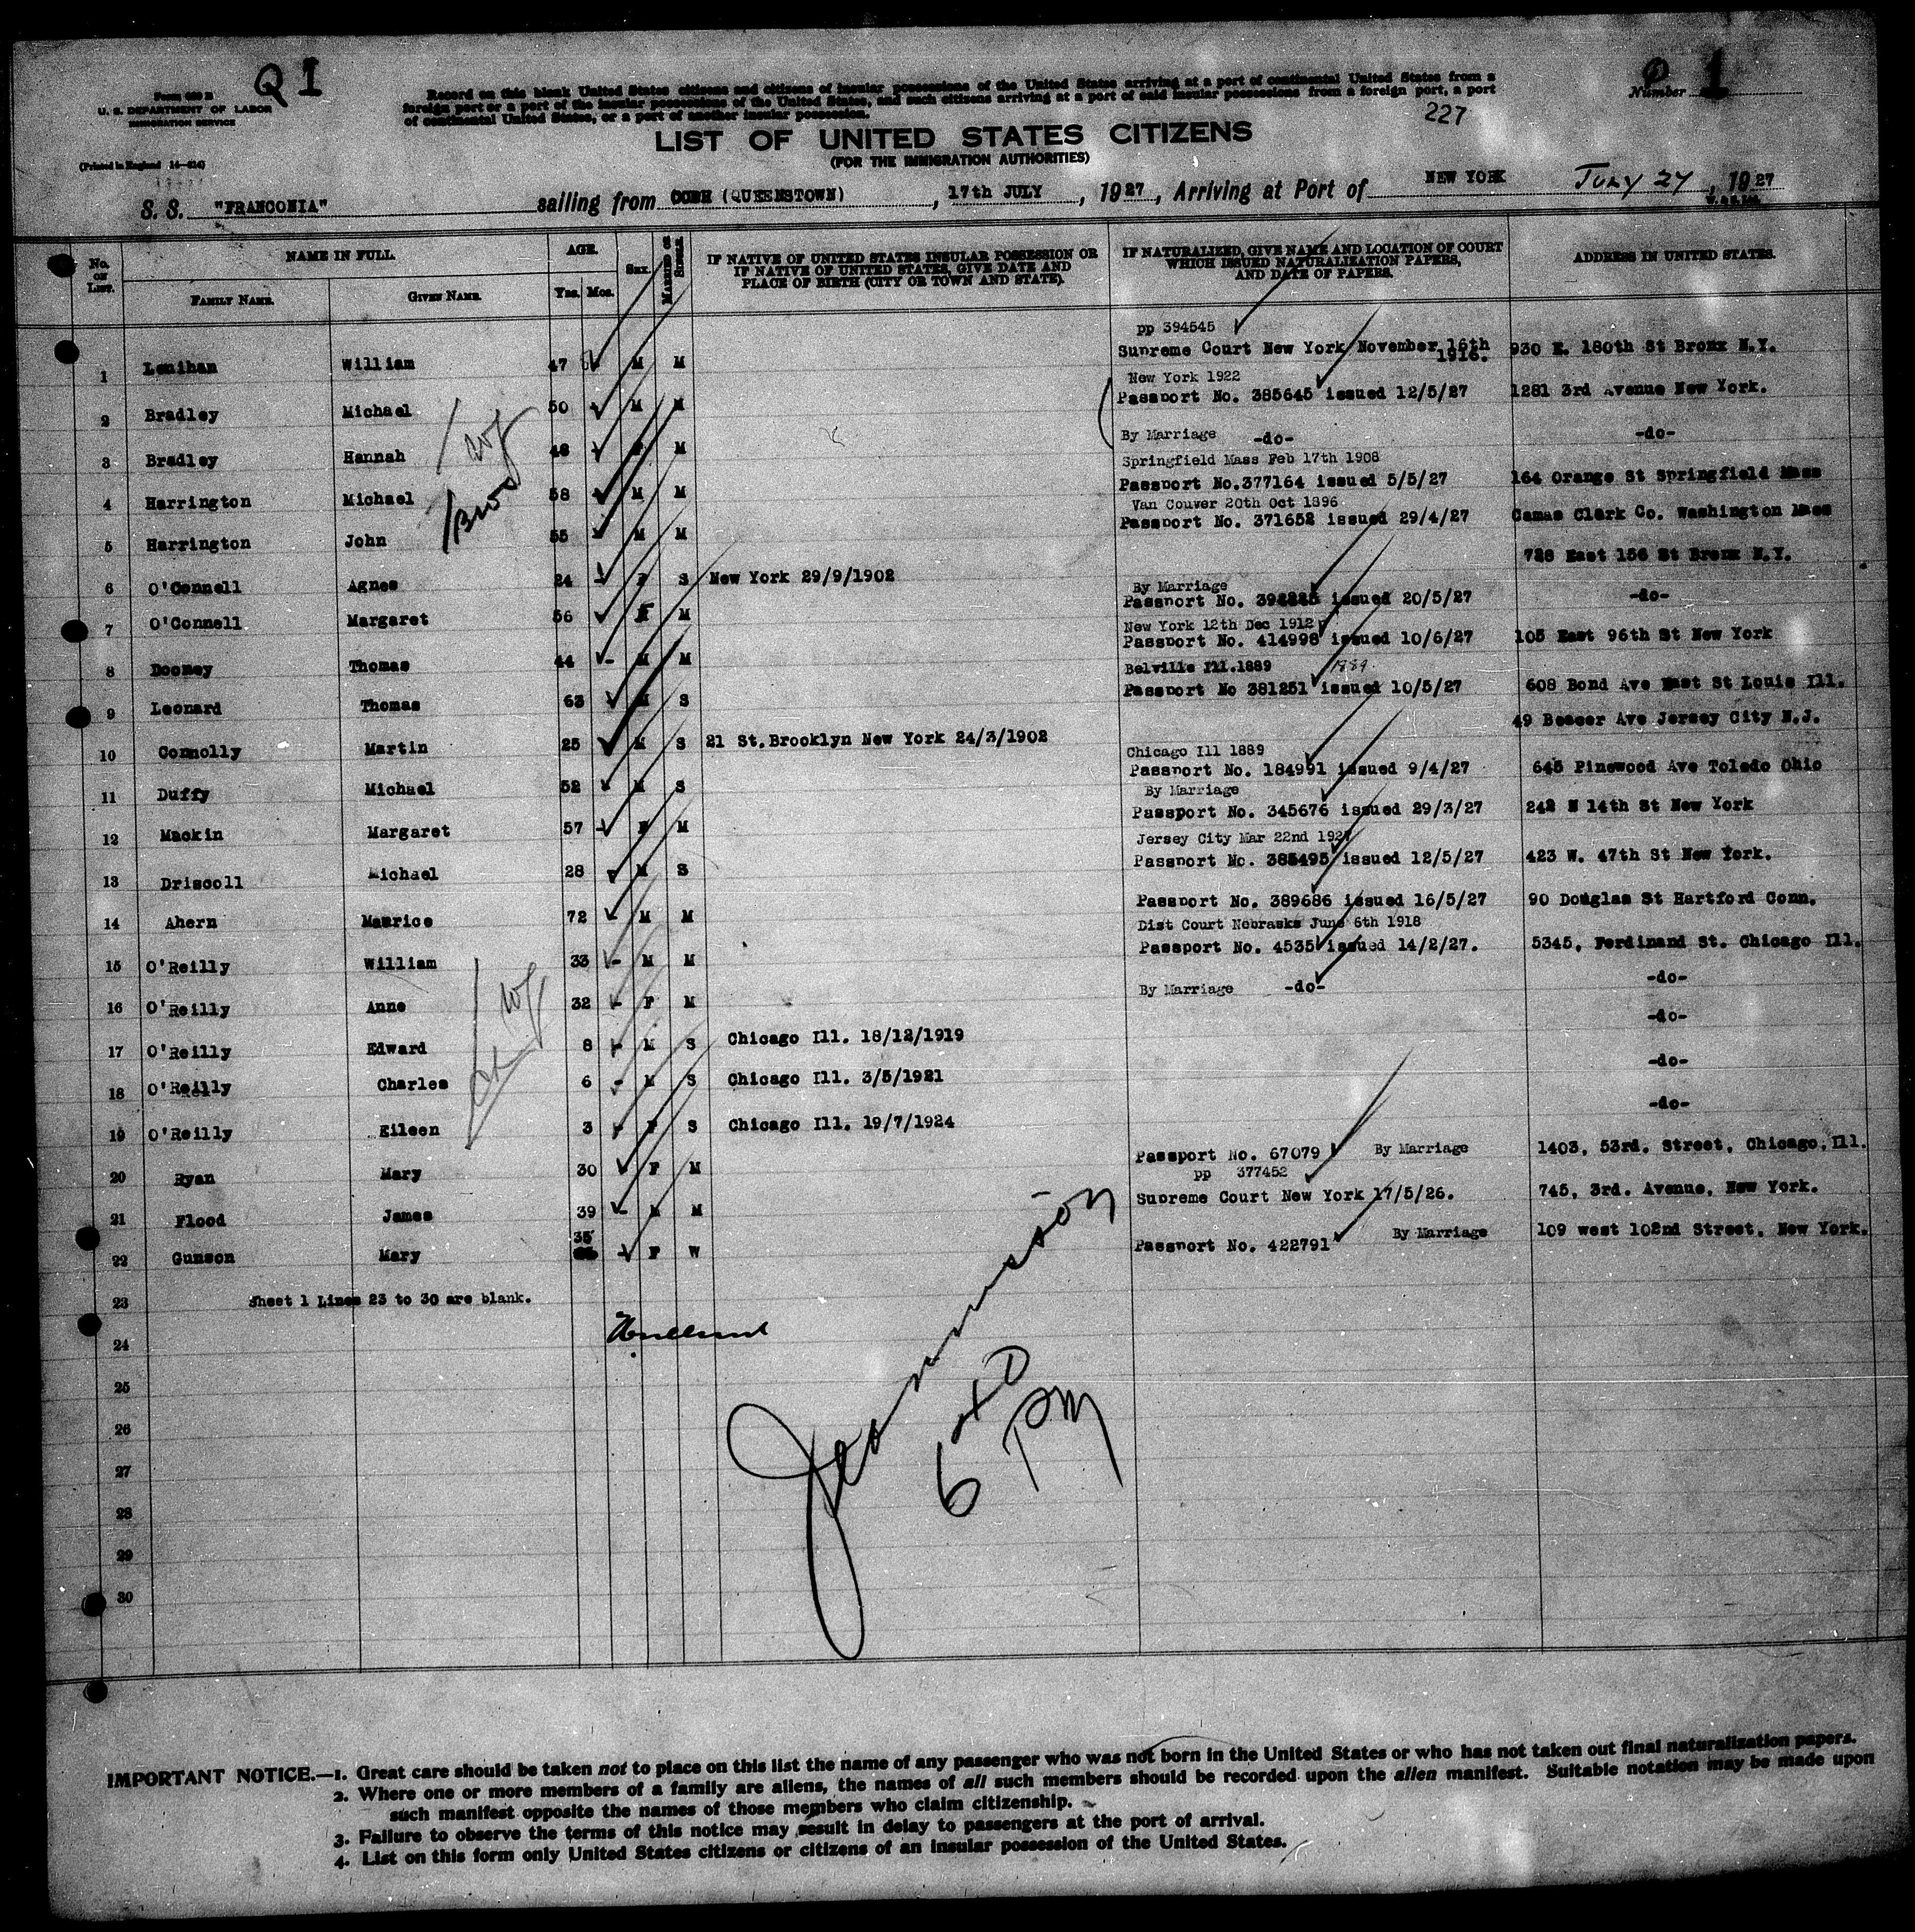 Q I
Form 630 B
U. S. DEPARTMENT OF LABOR
IMMIGRATION SERVICE
(Printed in England 14—214)
Record on this blank United States citizens and citizens of insular possessions of the United States arriving at a port of continental United States from a
foreign port or a port of the insular possessions of the United States, and such citizens arriving at a port of said insular possessions from a foreign port, a port
of continental United States, or a port of another insular possession.
Number 1
227
LIST OF UNITED STATES CITIZENS
(FOR THE IMMIGRATION AUTHORITIES)
S. S. "FRANCONIA" sailing from COBH (QUEENSTOWN), 17th JULY, 1927, Arriving at Port of NEW YORK July 27, 1927
No. on List. NAME IN FULL. AGE. Sex. Married or Single. IF NATIVE OF UNITED STATES INSULAR POSSESSION OR IF NATIVE OF UNITED STATES, GIVE DATE AND PLACE OF BIRTH (CITY OR TOWN AND STATE). IF NATURALIZED, GIVE NAME AND LOCATION OF COURT WHICH ISSUED NATURALIZATION PAPERS, AND DATE OF PAPERS. ADDRESS IN UNITED STATES.
Family Name. Given Name. Yrs. Mos.
pp 394545
1 Lenihan William 47 M M Supreme Court New York November 16th 1916. 930 E. 180th St Bronx N.Y.
New York 1922
2 Bradley Michael 50 M M Passport No. 385645 issued 12/5/27 1281 3rd Avenue New York.
3 Bradley Hannah 48 F M By Marriage -do- -do-
wf
Springfield Mass Feb 17th 1908
4 Harrington Michael 58 M M Passport No.377164 issued 5/5/27 164 Orange St Springfield Mass
Bro
Van Couver 20th Oct 1896
5 Harrington John 55 M M Passport No. 371652 issued 29/4/27 Camas Clark Co. Washington Mass
6 O'Connell Agnes 24 F S New York 29/9/1902 728 East 156 St Bronx N.Y.
By Marriage
7 O'Connell Margaret 56 F M Passport No. issued 20/5/27 -do-
New York 12th Dec 1912
8 Dooney Thomas 44 M M Passport No. 414998 issued 10/6/27 105 East 96th St New York
Belville Ill.1889 1889.
9 Leonard Thomas 63 M S Passport No 381251 issued 10/5/27 608 Bond Ave East St Louis Ill.
10 Connolly Martin 25 M S 21 St.Brooklyn New York 24/3/1902 49 Ave Jersey City N.J.
Chicago Ill 1889
11 Duffy Michael 52 M S Passport No. 184991 issued 9/4/27 645 Pinewood Ave Toledo Ohio
By Marriage
12 Mackin Margaret 57 F M Passport No. 345676 issued 29/3/27 242 N 14th St New York
Jersey City Mar 22nd 1927
13 Driscoll Michael 28 M S Passport No. 385495 issued 12/5/27 423 W. 47th St New York.
14 Ahern Maurice 72 M M Passport No. 389686 issued 16/5/27 90 Douglas St Hartford Conn.
Dist Court Nebraska June 6th 1918
15 O'Reilly William 33 M M Passport No. 4535 issued 14/2/27. 5345, Ferdinand St. Chicago Ill.
16 O'Reilly Anne 32 F M By Marriage -do- -do-
wf
17 O'Reilly Edward 8 M S Chicago Ill. 18/12/1919 -do-
18 O'Reilly Charles 6 M S Chicago Ill. 3/5/1921 -do-
ch
19 O'Reilly Eileen 3 F S Chicago Ill. 19/7/1924 -do-
20 Ryan Mary 30 F M Passport No. 67079 By Marriage 1403, 53rd. Street, Chicago, Ill.
pp 377452
21 Flood James 39 M M Supreme Court New York 17/5/26. 745, 3rd. Avenue, New York.
35
22 Gunson Mary F W Passport No. 422791 By Marriage 109 west 102nd Street, New York.
23 Sheet 1 Lines 23 to 30 are blank.
24
25
26
27
28
29
30
6 PM
IMPORTANT NOTICE.—1. Great care should be taken not to place on this list the name of any passenger who was not born in the United States or who has not taken out final naturalization papers.
2. Where one or more members of a family are aliens, the names of all such members should be recorded upon the alien manifest. Suitable notation may be made upon
such manifest opposite the names of those members who claim citizenship.
3. Failure to observe the terms of this notice may result in delay to passengers at the port of arrival.
4. List on this form only United States citizens or citizens of an insular possession of the United States.